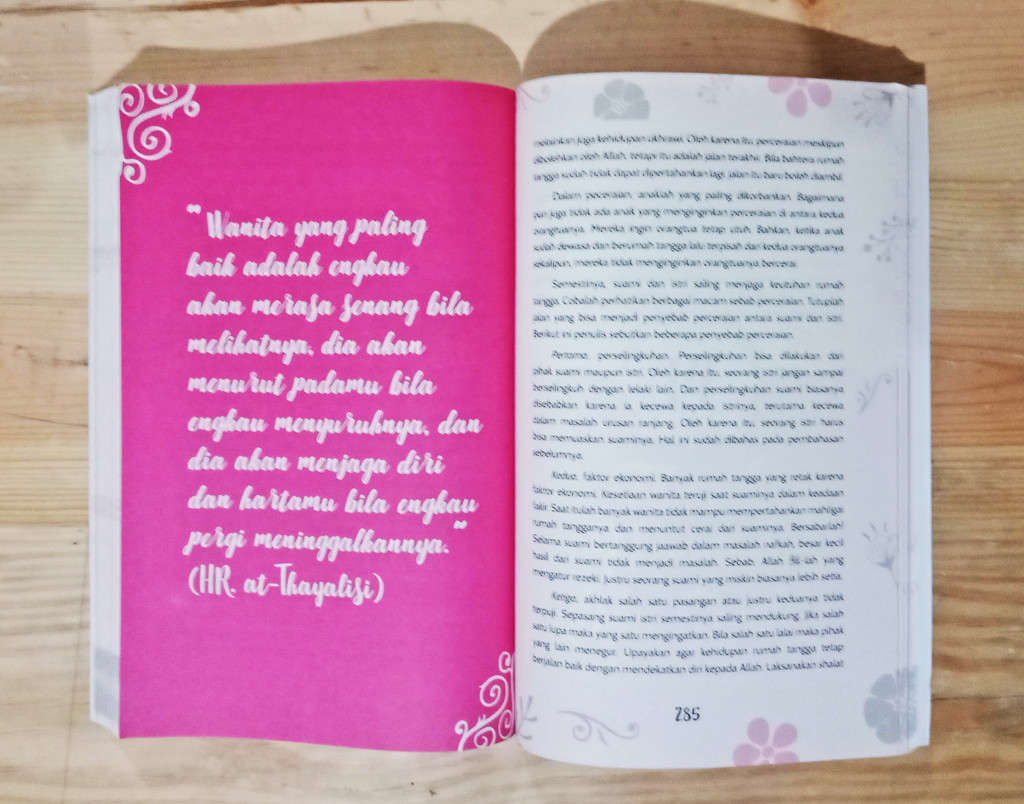 "Wanita yang paling
baik adalah engkau
akan merasa senang bila
melihatnya, dia akan
menurut padamu bila
engkau menyuruhnya, dan
dia akan menjaga diri
dan hartamu bila engkau
pergi meninggalkannya."
(HR. at-Thayalisi)
melainkan juga kehidupan ukhrawi. Oleh karena itu perceraian meskipun
dibolehkan oleh Allah, tetapi itu adalah jalan terakhir. Bila bahtera rumah
tangga sudah tidak dapat dipertahankan lagi, jalan itu baru boleh diambil.
Dalam peceraian, anaklah yang paling dikorbankan. Bagaimana
pun juga tidak ada anak yang menginginkan perceraian di antara kedua
orangtuanya. Mereka ingin orangtua tetap utuh. Bahkan, ketika anak
sudah dewasa dan berumah tangga lalu terpisah dari kedua orangtuanya
sekalipun, mereka tidak menginginkan orangtuanya bercerai.
Semestinya, suami dan istri saling menjaga keutuhan rumah
tangga. Cobalah perhatikan berbagai macam sebab perceraian. Tutuplah
jalan yang bisa menjadi penyebab perceraian antara suami dan istri.
Berikut ini penulis sebutkan beberapa penyebab perceraian.
Pertama, perselingkuhan. Perselingkuhan bisa dilakukan dari
pihak suami maupun istri. Oleh karena itu, seorang istri jangan sampai
berselingkuh dengan lelaki lain. Dan perselingkuhan suami biasanya
disebabkan karena ia kecewa kepada istrinya, terutama kecewa
dalam masalah urusan ranjang. Oleh karena itu, seorang istri harus
bisa memuaskan suaminya. Hal ini sudah dibahas pada pembahasan
sebelumnya.
Kedua, faktor ekonomi. Banyak rumah tangga yang retak karena
faktor ekonomi. Kesetiaan wanita teruji saat suaminya dalam keadaan
fakir. Saat itulah banyak wanita tidak mampu mempertahankan mahligai
rumah tangganya dan menuntut cerai dari suaminya. Bersabarlah!
Selama suami bertanggung jaawab dalam masalah nafkah, besar kecil
hasil dari suami tidak menjadi masalah. Sebab, Allah -lah yang
mengatur rezeki. Justru seorang suami yang miskin biasanya lebih setia.
Ketiga, akhlak salah satu pasangan atau justru keduanya tidak
terpuji. Sepasang suami istri semestinya saling mendukung. Jika salah
satu lupa maka yang satu mengingatkan. Bila salah satu lalai maka pihak
yang lain menegur. Upayakan agar kehidupan rumah tangga tetap
berjalan baik dengan mendekatkan diri kepada Allah. Laksanakan shalat
285